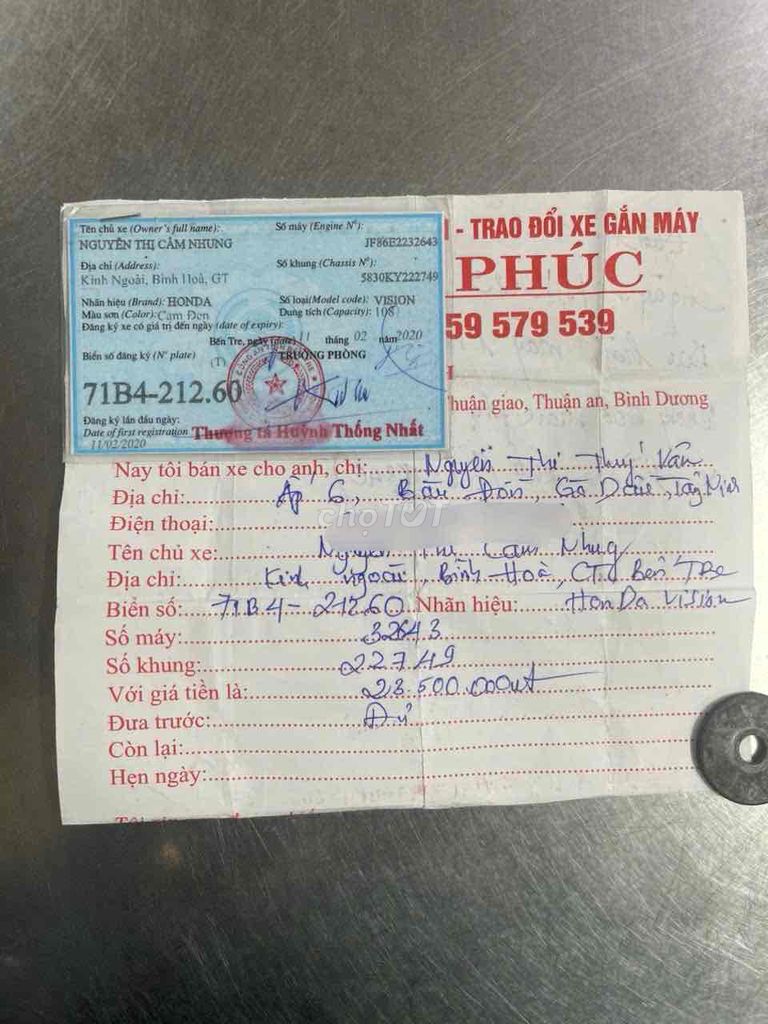 Tên chủ xe (Owner's full name):
NGUYỄN THỊ CẨM NHUNG
Số máy (Engine Nº):
JF86E2232643
Địa chỉ (Address):
Kinh Ngoài, Bình Hoà, GT
Số khung (Chassis Nº):
5830KY222749
Nhãn hiệu (Brand): HONDA
Số loại(Model code): VISION
Màu sơn (Color): Cam Đen
Dung tích (Capacity): 108
Đăng ký xe có giá trị đến ngày (date of expiry):
Bến Tre, ngày (date) 11 tháng 02 năm 2020
Biển số đăng ký (Nº plate)
(T)
TRƯỞNG PHÒNG
71B4-212.60
Đăng ký lần đầu ngày:
Date of first registration
11/02/2020
Thượng tá Huỳnh Thống Nhất
- TRAO ĐỔI XE GẮN MÁY
PHÚC
59 579 539
Thuận giao, Thuận an, Bình Dương
Nay tôi bán xe cho anh, chị: Nguyễn Thị Thuý Vân
Địa chỉ: Ấp 6, Bàu Đồn, Gò Dầu, Tây Ninh
Điện thoại:
chợTỐT
Tên chủ xe: Nguyễn Thị Cẩm Nhug
Địa chỉ: Kinh ngoài, Bình-Hoà, CT, Bến Tre
Biển số: 71B4-212.60 Nhãn hiệu: HonDa Vision
Số máy: 32643
Số khung: 22749
Với giá tiền là: 23.500.000
Đưa trước: Đủ
Còn lại:
Hẹn ngày: